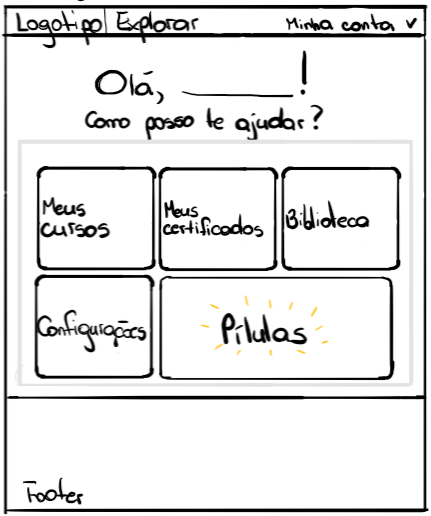 Logotipo Explorar Minha conta v
Olá, ______!
Como posso te ajudar?
Meus
cursos
Meus
certificados
Biblioteca
Configurações
Pílulas
Footer